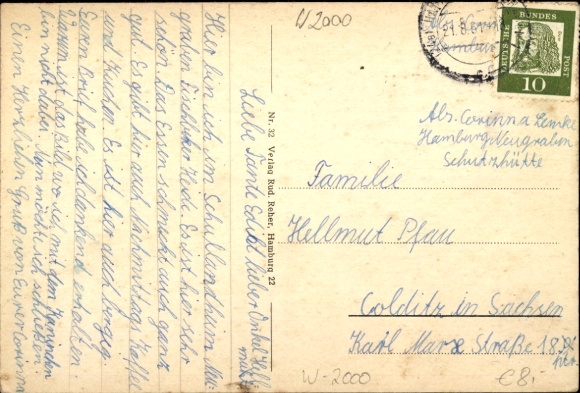 W 2000
21.8.61
DEUTSCHE BUNDESPOST
10
Abs. Corinna Lemke
Hamburg Neugraben
Schutzhütte
Familie
Hellmut Pfau
Colditz in Sachsen
Karl Marx Straße 18
Nr. 32 Verlag Rud. Reher, Hamburg 22
Liebe Tante Edith lieber Onkel Hell-
mut
Hier bin ich im Schullandheim Neu-
graben Fischbeker Heide. Es ist hier sehr
schön. Das Essen schmeckt auch ganz
gut. Es gibt hier auch Nachmittags Kaffee
und Kuchen. Es ist hier auch bergig.
Euren Brief habe ich dankend erhalten.
Warum ist das Bild wo ich mit dem Kaninchen
bin nicht dabei. Nun möchte ich schließen.
Einen Herzlichen Gruß von Eurer Corinna
W-2000
€ 8,-